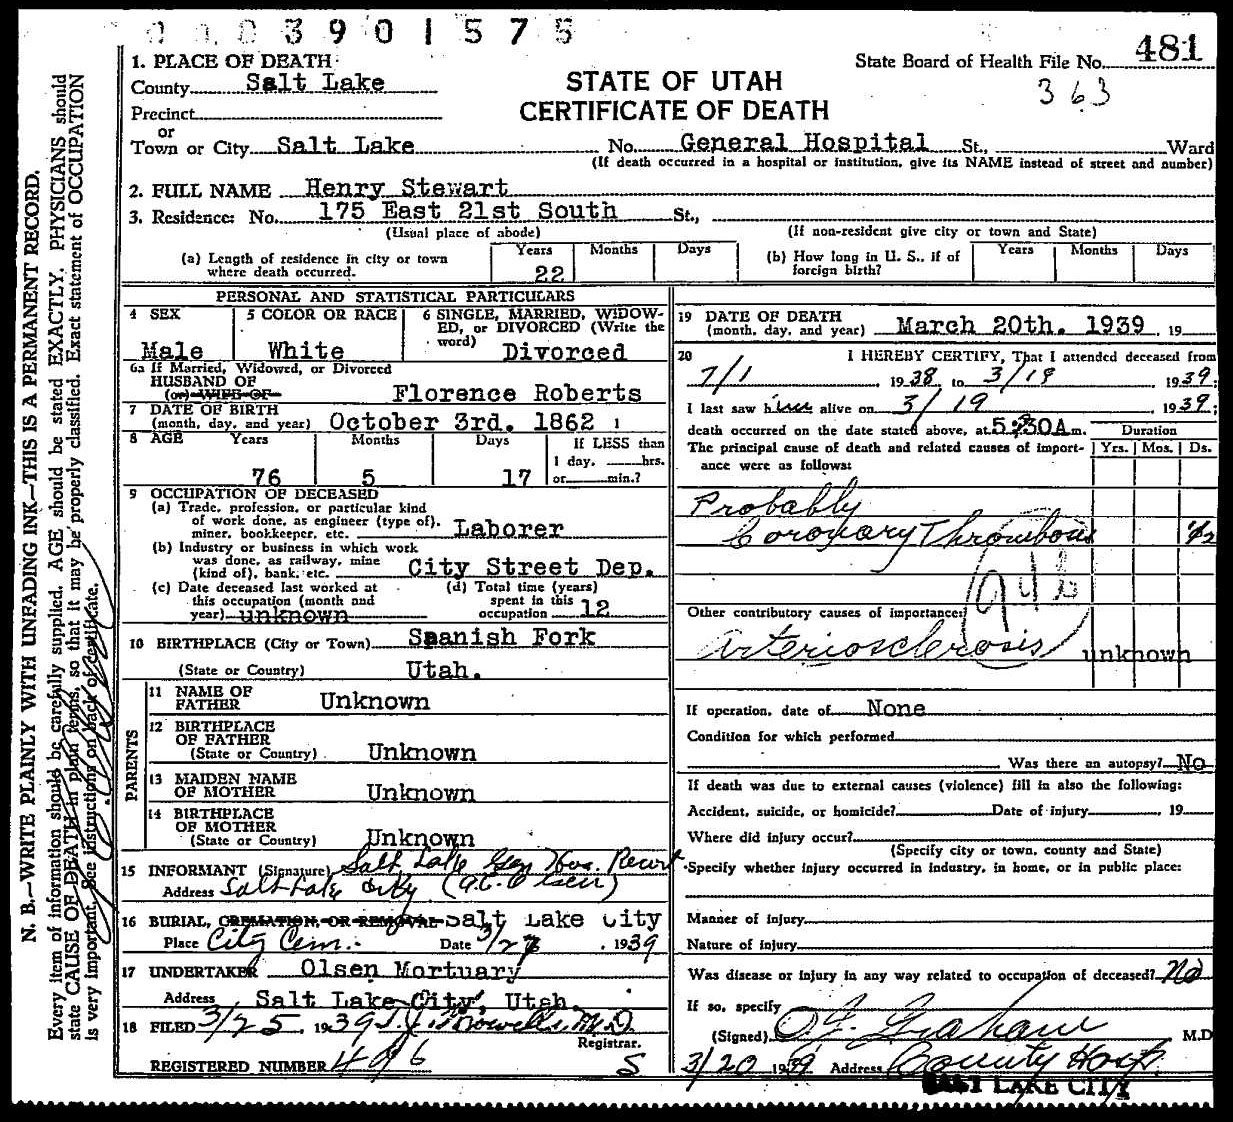 3901575
1. PLACE OF DEATH
County Salt Lake
Precinct
or
Town or City Salt Lake No. General Hospital St., Ward
(If death occurred in a hospital or institution, give its NAME instead of street and number)
STATE OF UTAH
CERTIFICATE OF DEATH
State Board of Health File No. 481
363
2. FULL NAME Henry Stewart
3. Residence: No. 175 East 21st South St.,
(Usual place of abode) (If non-resident give city or town and State)
(a) Length of residence in city or town where death occurred. Years 22 Months Days
(b) How long in U. S., if of foreign birth? Years Months Days
PERSONAL AND STATISTICAL PARTICULARS
4 SEX Male
5 COLOR OR RACE White
6 SINGLE, MARRIED, WIDOWED, or DIVORCED (Write the word) Divorced
6a If Married, Widowed, or Divorced
HUSBAND OF
(or) WIFE OF Florence Roberts
7 DATE OF BIRTH
(month, day, and year) October 3rd. 1862
8 AGE Years 76 Months 5 Days 17 If LESS than 1 day, hrs. or min.?
9 OCCUPATION OF DECEASED
(a) Trade, profession, or particular kind
of work done, as engineer (type of).
miner, bookkeeper, etc. Laborer
(b) Industry or business in which work
was done, as railway, mine
(kind of), bank, etc. City Street Dep.
(c) Date deceased last worked at this occupation (month and year) unknown
(d) Total time (years) spent in this occupation 12
10 BIRTHPLACE (City or Town) Spanish Fork
(State or Country) Utah.
PARENTS
11 NAME OF FATHER Unknown
12 BIRTHPLACE OF FATHER
(State or Country) Unknown
13 MAIDEN NAME OF MOTHER Unknown
14 BIRTHPLACE OF MOTHER
(State or Country) Unknown
15 INFORMANT (Signature) Salt Lake Gen Hos. Record
Address Salt Lake City
16 BURIAL, CREMATION, OR REMOVAL Salt Lake City
Place City Cem. Date 3/27, 1939
17 UNDERTAKER Olsen Mortuary
Address Salt Lake City, Utah.
18 FILED 3/25, 1939 M.D.
Registrar.
REGISTERED NUMBER 496 S
19 DATE OF DEATH
(month, day, and year) March 20th. 1939, 19
20 I HEREBY CERTIFY, That I attended deceased from
7/1 1938 to 3/19 1939;
I last saw him alive on 3/19, 1939;
death occurred on the date stated above, at 5:30A m.
The principal cause of death and related causes of importance were as follows:
Duration
Yrs. Mos. Ds.
Probably
Coronary Thrombosis 1/2
94b
Other contributory causes of importance:
Arteriosclerosis unknown
If operation, date of None
Condition for which performed
Was there an autopsy? No
If death was due to external causes (violence) fill in also the following:
Accident, suicide, or homicide? Date of injury, 19
Where did injury occur?
(Specify city or town, county and State)
Specify whether injury occurred in industry, in home, or in public place:
Manner of Injury
Nature of injury
Was disease or injury in any way related to occupation of deceased? No
If so, specify
(Signed) Graham M.D
3/20 1939 Address County Hosp.
SALT LAKE CITY
N. B.—WRITE PLAINLY WITH UNFADING INK—THIS IS A PERMANENT RECORD.
Every item of information should be carefully supplied. AGE should be stated EXACTLY. PHYSICIANS should
state CAUSE OF DEATH in plain terms, so that it may be properly classified. Exact statement of OCCUPATION
is very important. See instructions on back of certificate.